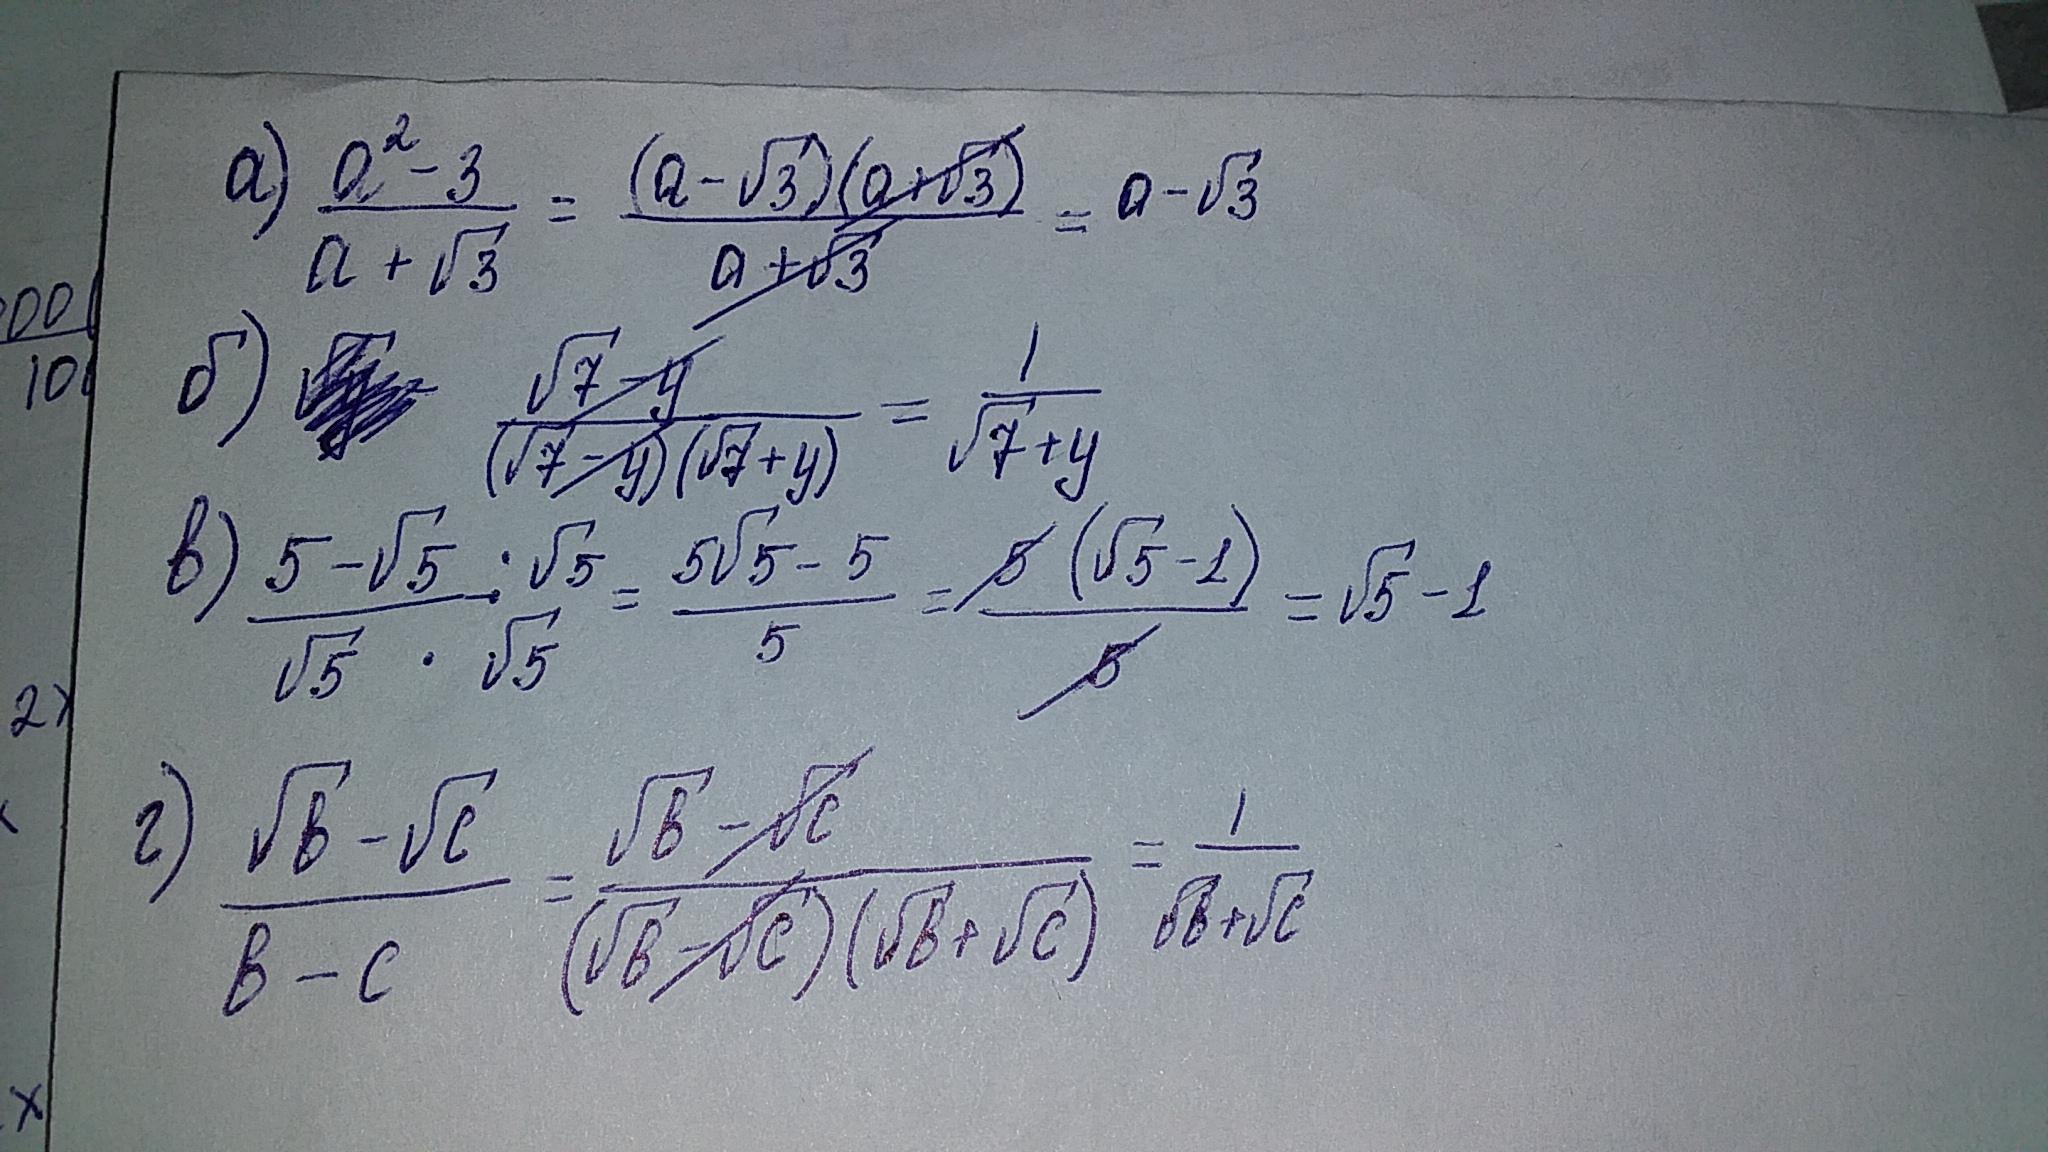 а) (a² - 3)/(a + √3) = ((a - √3)(a + √3))/(a + √3) = a - √3
б) (√7 - y)/((√7 - y)(√7 + y)) = 1/(√7 + y)
в) (5 - √5 · √5)/(√5 · √5) = (5√5 - 5)/5 = (5 (√5 - 1))/5 = √5 - 1
г) (√b - √c)/(b - c) = (√b - √c)/((√b - √c)(√b + √c)) = 1/(√b + √c)
00
10
2x
x